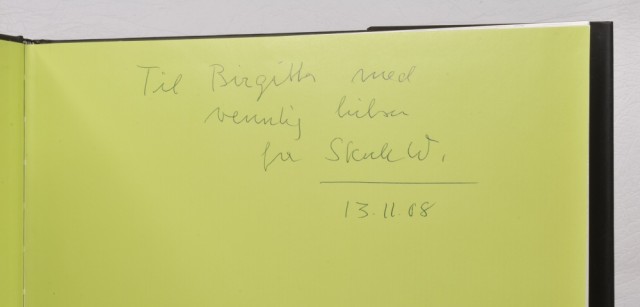 Til Birgitta med
venntlig hilsen
fra Skak W.
13.11.08